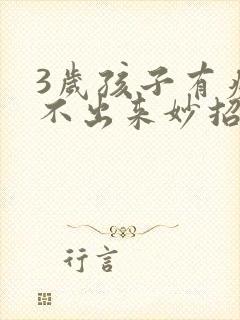 3歲孩子有痰
不出来妙招
行言